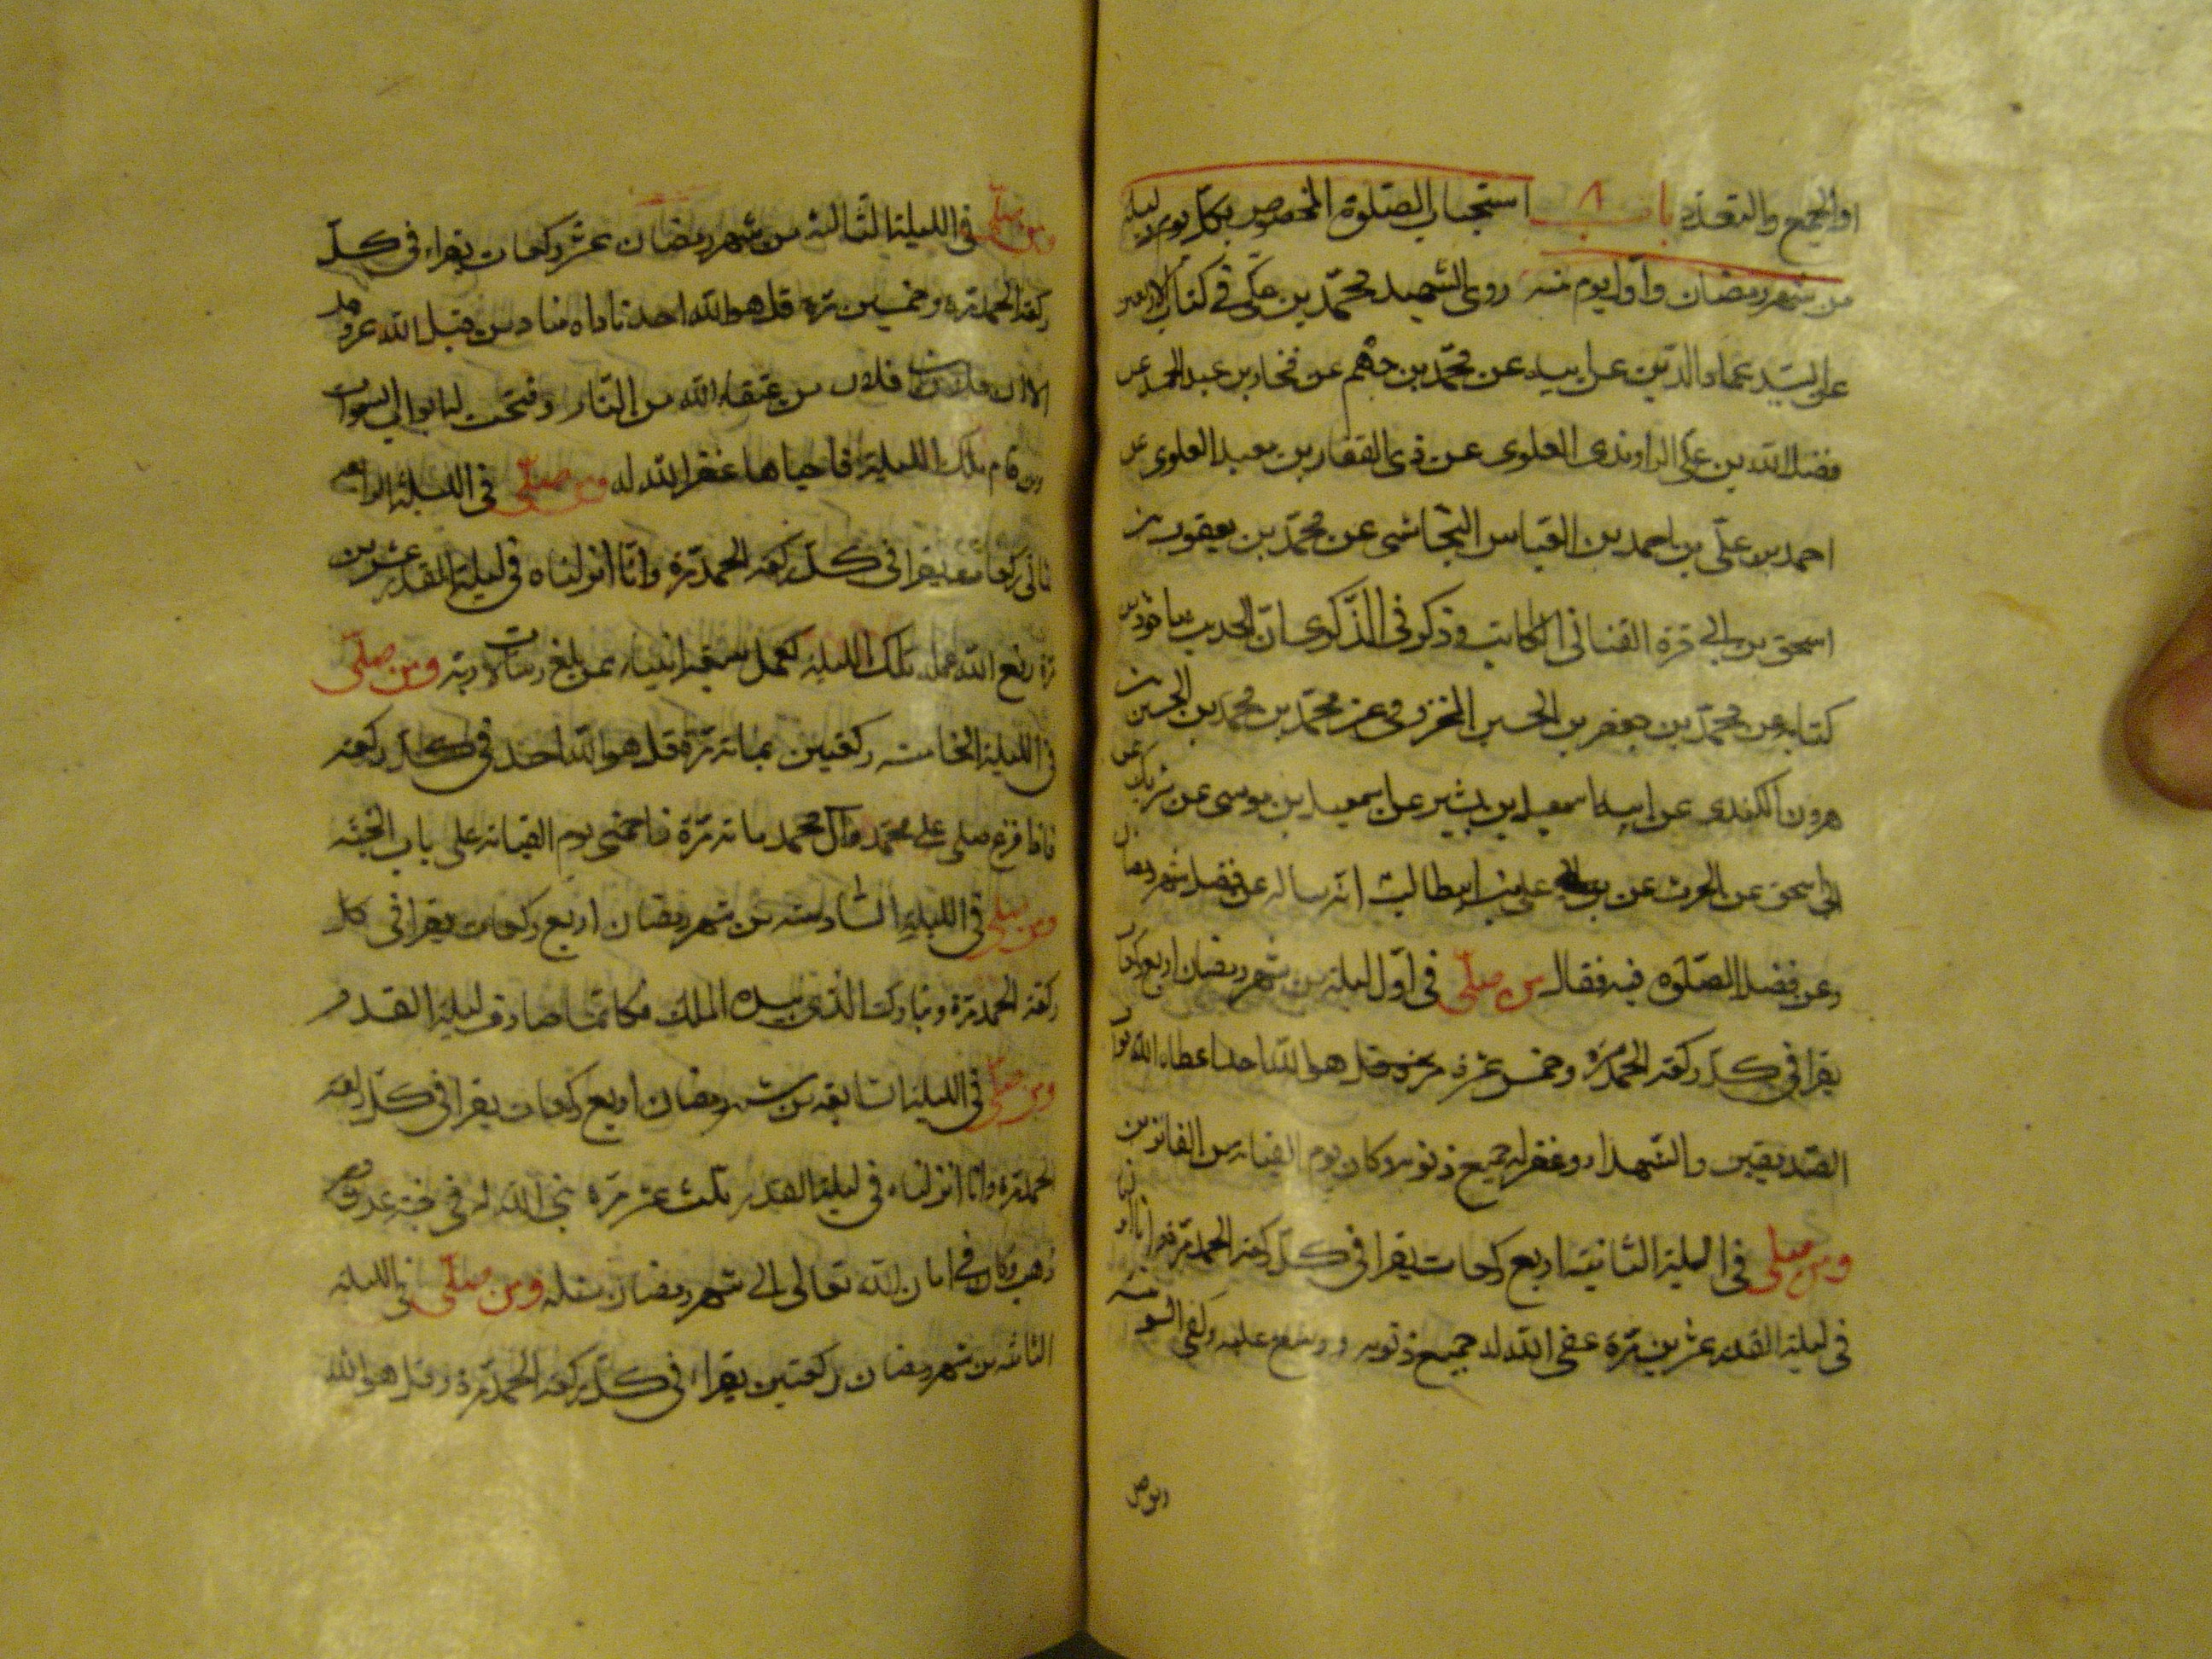 او الجميع والتعدد باب ٨ استحباب الصلوة المخصوص بكل يوم ليلة
من شهر رمضان واول يوم منه روى الشهيد محمد بن مكى فى كتاب الاربعين
عن السيد عماد الدين عن ابيه عن محمد بن جهم عن فخار بن عبد الحميد عن
فضل الله بن على الراوندى العلوى عن ذى الفقار بن معبد العلوى عن
احمد بن على بن احمد بن العباس النجاشى عن محمد بن يعقوب بن
اسحق بن ابى قرة القنانى الكاتب وذكر فى الذكرى ان الحديث ماخوذ من
كتابه عن محمد بن جعفر بن الحسين المخزومى عن محمد بن محمد بن الحسين بن
هرون الكندى عن ابيه اسمعيل بن بشير عن اسمعيل بن موسى عن شريك عن
ابى اسحق عن الحرث عن على بن ابيطالب انه ساله عن فضل شهر رمضان
وعن فضل الصلوة فيه فقال من صلى فى اول ليلة من شهر رمضان اربع ركعات
يقرا فى كل ركعة الحمد مرة وخمس عشرة مرة قل هو الله احد اعطاه الله ثواب
الصديقين والشهداء وغفر له جميع ذنوبه وكان يوم القيامة من الفائزين
ومن صلى فى الليلة الثانية اربع ركعات يقرا فى كل ركعة الحمد مرة وانا انزلناه
فى ليلة القدر عشرين مرة غفر الله له جميع ذنوبه ووسع عليه وكفى السوء سنته
ومن صلى
ومن صلى فى الليلة الثالثة من شهر رمضان عشر ركعات يقراء فى كل
ركعة الحمد مرة وخمسين مرة قل هو الله احد ناداه مناد من قبل الله عز وجل
الا ان فلان بن فلان من عتقاء الله من النار وفتحت له ابواب السموات
ومن قام تلك الليلة فاحياها غفر الله له ومن صلى فى الليلة الرابعة
ثمانى ركعات يقرا فى كل ركعة الحمد مرة وانا انزلناه فى ليلة القدر عشرين
مرة رفع الله عمله تلك الليلة كعمل سبعة انبياء ممن بلغ رسالات ربه ومن صلى
فى الليلة الخامسة ركعتين بمائة مرة قل هو الله احد فى كل ركعة
فاذا فرغ صلى على محمد وآل محمد مائة مرة زاحمنى يوم القيامة على باب الجنة
ومن صلى فى الليلة السادسة من شهر رمضان اربع ركعات يقرا فى كل
ركعة الحمد مرة وتبارك الذى بيده الملك فكانما صادف ليلة القدر
ومن صلى فى الليلة السابعة من شهر رمضان اربع ركعات يقرا فى كل ركعة
الحمد مرة وانا انزلناه فى ليلة القدر ثلث عشر مرة بنى الله له فى جنة عدن قصر
ذهب وكان فى امان الله تعالى الى شهر رمضان مثله ومن صلى فى الليلة
الثامنة من شهر رمضان ركعتين يقراء فى كل ركعة الحمد مرة وقل هو الله